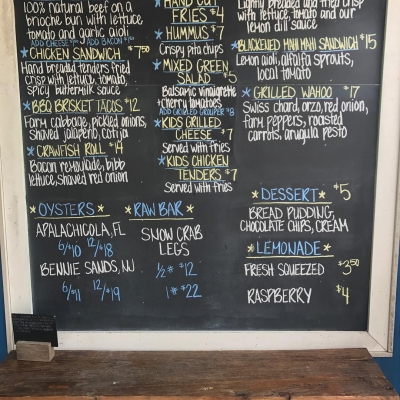 100% natural beef on a
brioche bun with lettuce,
tomato and garlic aioli
ADD CHEESE ADD BACON
CHICKEN SANDWICH $7.50
Hand breaded tenders fried
crisp with lettuce, tomato,
spicy buttermilk sauce
BBQ BRISKET TACOS $12
Farm cabbage, pickled onions,
shaved jalapeño, cotija
CRAWFISH ROLL $14
Bacon remoulade, bibb
lettuce, shaved red onion
HAND CUT
FRIES $4
HUMMUS $7
Crispy pita chips
MIXED GREEN
SALAD $5
Balsamic vinaigrette
cherry tomatoes
ADD GRILLED GROUPER $8
KIDS GRILLED
CHEESE $7
served with fries
KIDS CHICKEN
TENDERS $7
Served with fries
Lightly breaded and fried crisp
with lettuce, tomato and our
lemon dill sauce
BLACKENED MAHI MAHI SANDWICH $15
Lemon aioli, alfalfa sprouts,
local tomato
GRILLED WAHOO $17
Swiss chard, orzo, red onion,
farm peppers, roasted
carrots, arugula pesto
OYSTERS
APALACHICOLA, FL
6/$10 12/$18
BENNIE SANDS, NJ
6/$11 12/$19
RAW BAR
SNOW CRAB
LEGS
½# $12
1# $22
DESSERT $5
BREAD PUDDING,
CHOCOLATE CHIPS, CREAM
LEMONADE
FRESH SQUEEZED $3.50
RASPBERRY $4